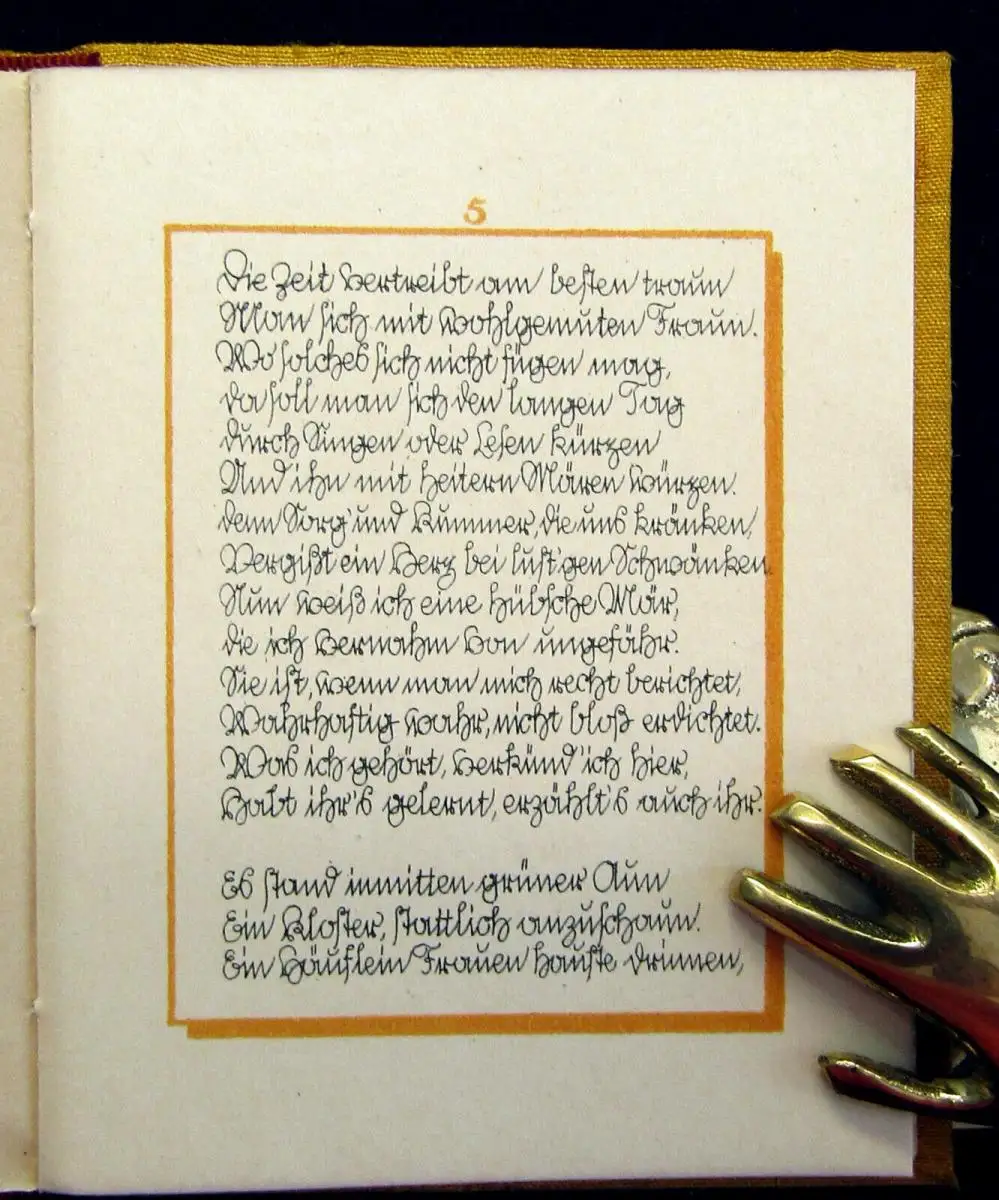 5
Die Zeit vertreibt am besten traun
Man sich mit wohlgemuten Fraun.
Wo solches sich nicht fügen mag,
da soll man sich den langen Tag
durch Singen oder Lesen kürzen
Und ihn mit heitern Mären würzen.
denn Sorg' und Kummer, die uns kränken,
Vergißt ein Herz bei lust'gen Schwänken.
Nun weiß ich eine hübsche Mär,
die ich vernahm von ungefähr.
Sie ist, wenn man mich recht berichtet,
Wahrhaftig wahr, nicht bloß erdichtet.
Was ich gehört, verkünd' ich hier,
Habt ihr's gelernt, erzählt's auch ihr.
Es stand inmitten grüner Aun
Ein Kloster, stattlich anzuschaun.
Ein Häuflein Frauen hauste drinnen,